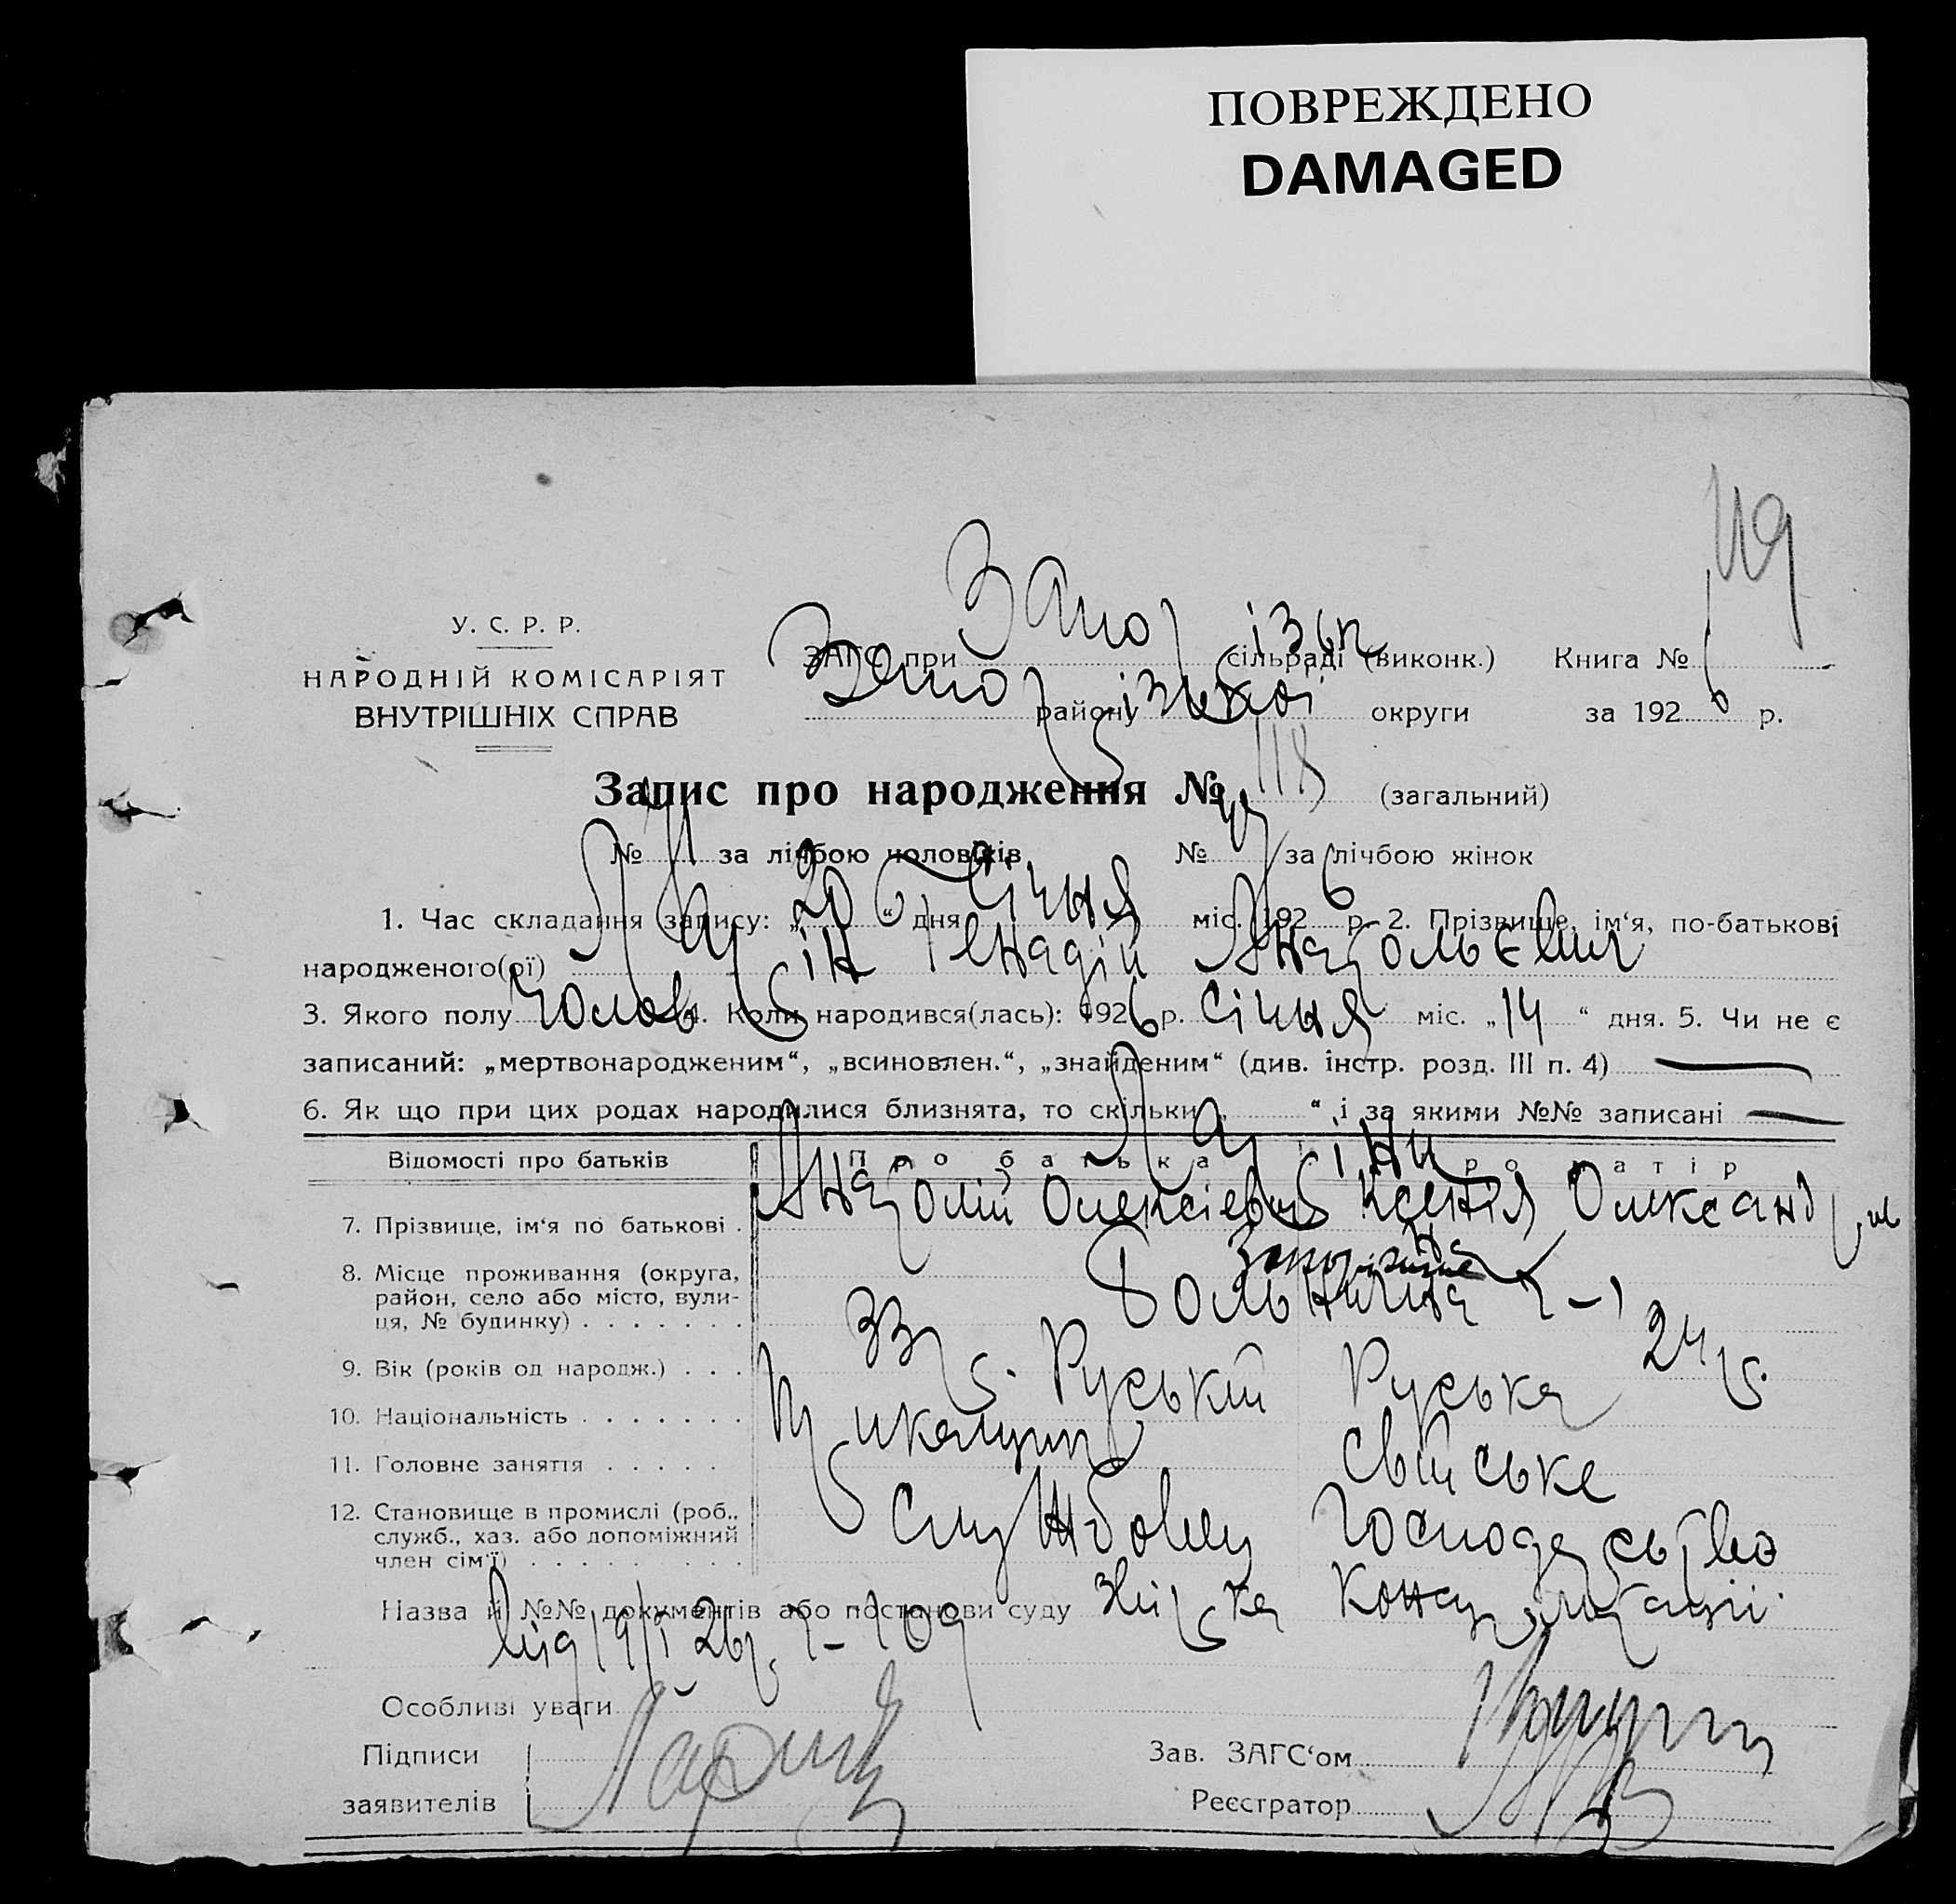 ПОВРЕЖДЕНО
DAMAGED
119
У. С. Р. Р.
НАРОДНІЙ КОМІСАРІЯТ
ВНУТРІШНІХ СПРАВ
ЗАГС при Запорізьк сільраді (виконк.) Книга №
району Запорізької округи за 1926 р.
Запис про народження № 118 (загальний)
№ за лічбою чоловіків № за лічбою жінок
1. Час складання запису: „20“ дня Січня міс. 1926 р. 2. Прізвище, ім‘я, по-батькові
народженого(ої) Ларін Генадій Анатольєвич
3. Якого полу Чолов 4. Коли народився(лась): 1926 р. Січня міс. „14“ дня. 5. Чи не є
записаний: „мертвонародженим“, „всиновлен.“, „знайденим“ (див. інстр. розд. III п. 4) —
6. Як що при цих родах народилися близнята, то скільки „ “ і за якими №№ записані —
Відомості про батьків Про батька Про матір
Ларіни
7. Прізвище, ім‘я по батькові . Анатолій Олексієвич Ксенія Олександр
8. Місце проживання (округа,
район, село або місто, вули-
ця, № будинку) . . . . . . . Больнична
9. Вік (років од народж.) . . . 33 р. 24 р.
10. Національність . . . . . . . Руський Руська
11. Головне заняття . . . . . свійське
12. Становище в промислі (роб.,
служб., хаз. або допоміжний
член сім‘ї) . . . . . . . . . Службовец господарство
Назва й №№ документів або постанови суду консультації
від 19/I 26р.
Особливі уваги
Підписи
заявителів
Зав. ЗАГС‘ом
Реєстратор